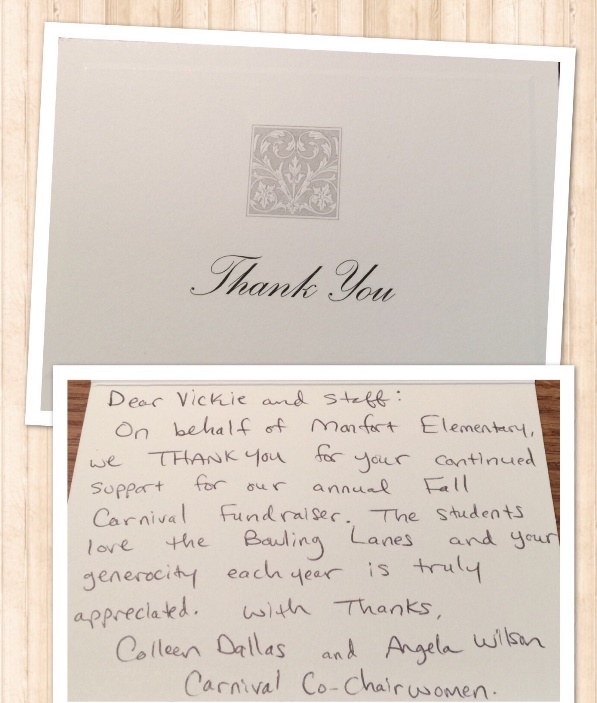 Thank You
Dear Vickie and staff:
On behalf of Monfort Elementary,
we THANK YOU for your continued
support for our annual Fall
Carnival Fundraiser. The students
love the Bowling Lanes and your
generocity each year is truly
appreciated. With Thanks,
Colleen Dallas and Angela Wilson
Carnival Co-Chairwomen.